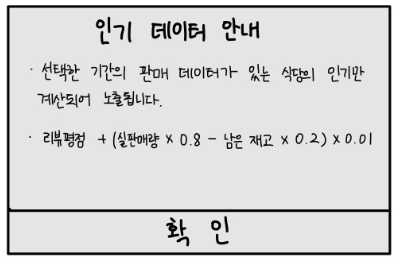 인기 데이터 안내
· 선택한 기간의 판매 데이터가 있는 식당의 인기만
계산되어 노출됩니다.
· 리뷰평점 + (실판매량 × 0.8 - 남은 재고 × 0.2) × 0.01
확 인